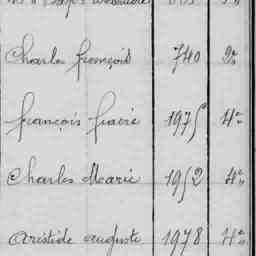 Charles françois 740 2º
françois fiacre 1975 4º
Charles Marie 1952 4º
Aristide auguste 1978 4º